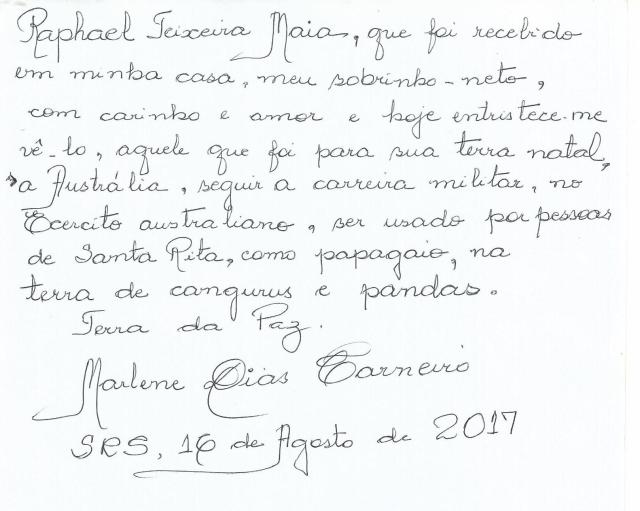 Raphael Teixeira Maia, que foi recebido
em minha casa, meu sobrinho-neto,
com carinho e amor e hoje entristece-me
vê-lo, aquele que foi para sua terra natal,
a Austrália, seguir a carreira militar, no
Exercito australiano, ser usado por pessoas
de Santa Rita, como papagaio, na
terra de cangurus e pandas.
Terra da Paz.
Marlene Dias Carneiro
SRS, 16 de Agosto de 2017